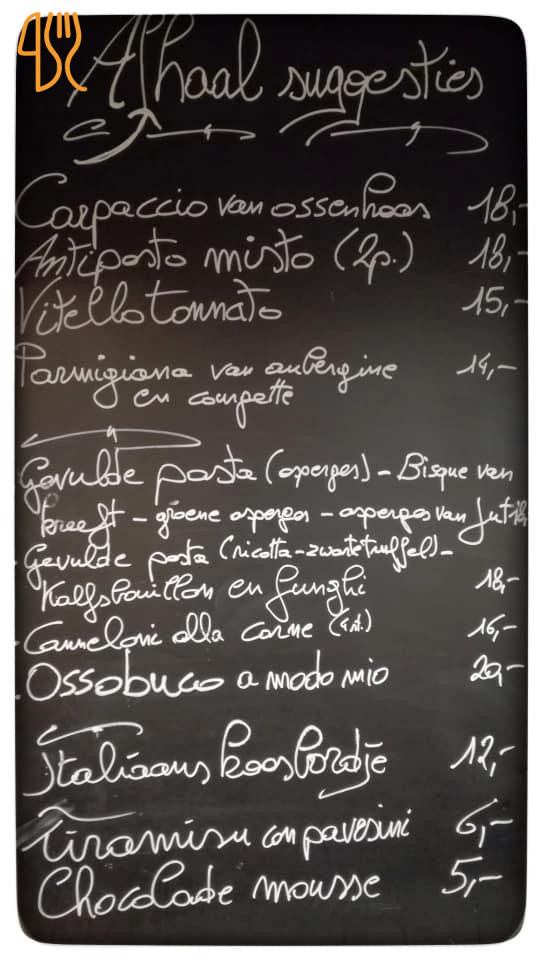 Afhaal suggesties
Carpaccio van ossenhaas 18,-
Antipasto misto (2p.) 18,-
Vitello tonnato 15,-
Parmigiana van aubergine 14,-
en courgette
Gevulde pasta (asperges) - Bisque van
kreeft - groene asperges - asperges van
- Gevulde pasta (ricotta-zwarte truffel) -
Kalfsbouillon en funghi 18,-
- Canneloni alla carne 16,-
- Ossobuco a modo mio 20,-
Italiaans kaasbordje 12,-
Tiramisu con pavesini 6,-
Chocolade mousse 5,-